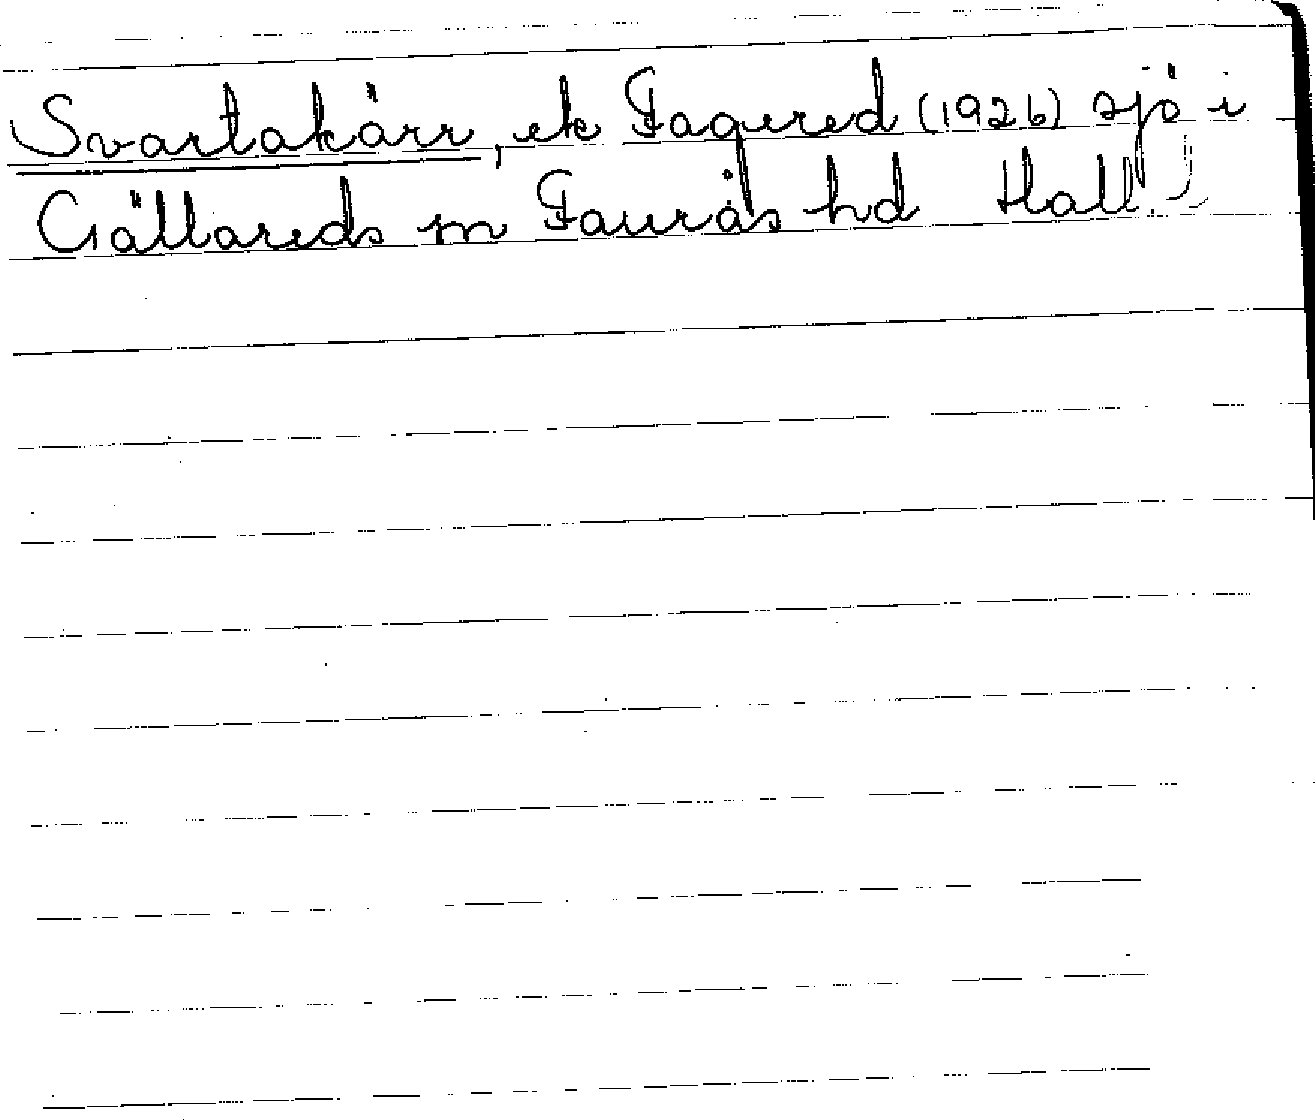 Svartakärr, ek Fagered (1926) sjö i
Gällareds sn Faurås hd Hall.